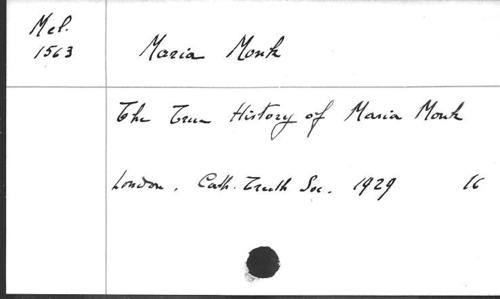 Mel.
1563
Maria Monk
The True History of Maria Monk
London, Cath. Truth Soc. 1929 16